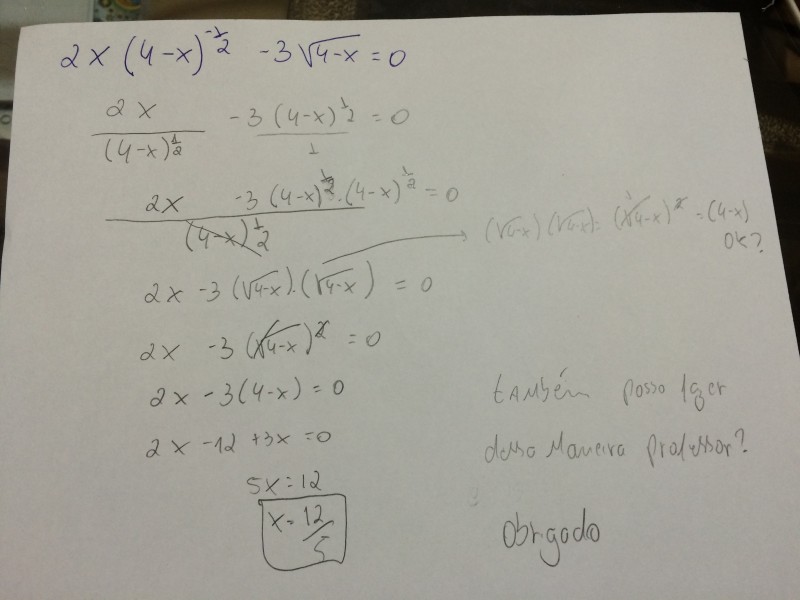 2x (4-x)^-1/2 -3√4-x = 0
2x / (4-x)^1/2 -3(4-x)^1/2 / 1 = 0
2x -3(4-x)^1/2 . (4-x)^1/2 / (4-x)^1/2 = 0
2x -3(√4-x).(√4-x) = 0
(√4-x)(√4-x) = (√4-x)^2 = (4-x)
OK?
2x -3(√4-x)^2 = 0
2x -3(4-x) = 0
2x -12 +3x = 0
5x = 12
x = 12/5
também posso fazer
dessa maneira professor?
Obrigado